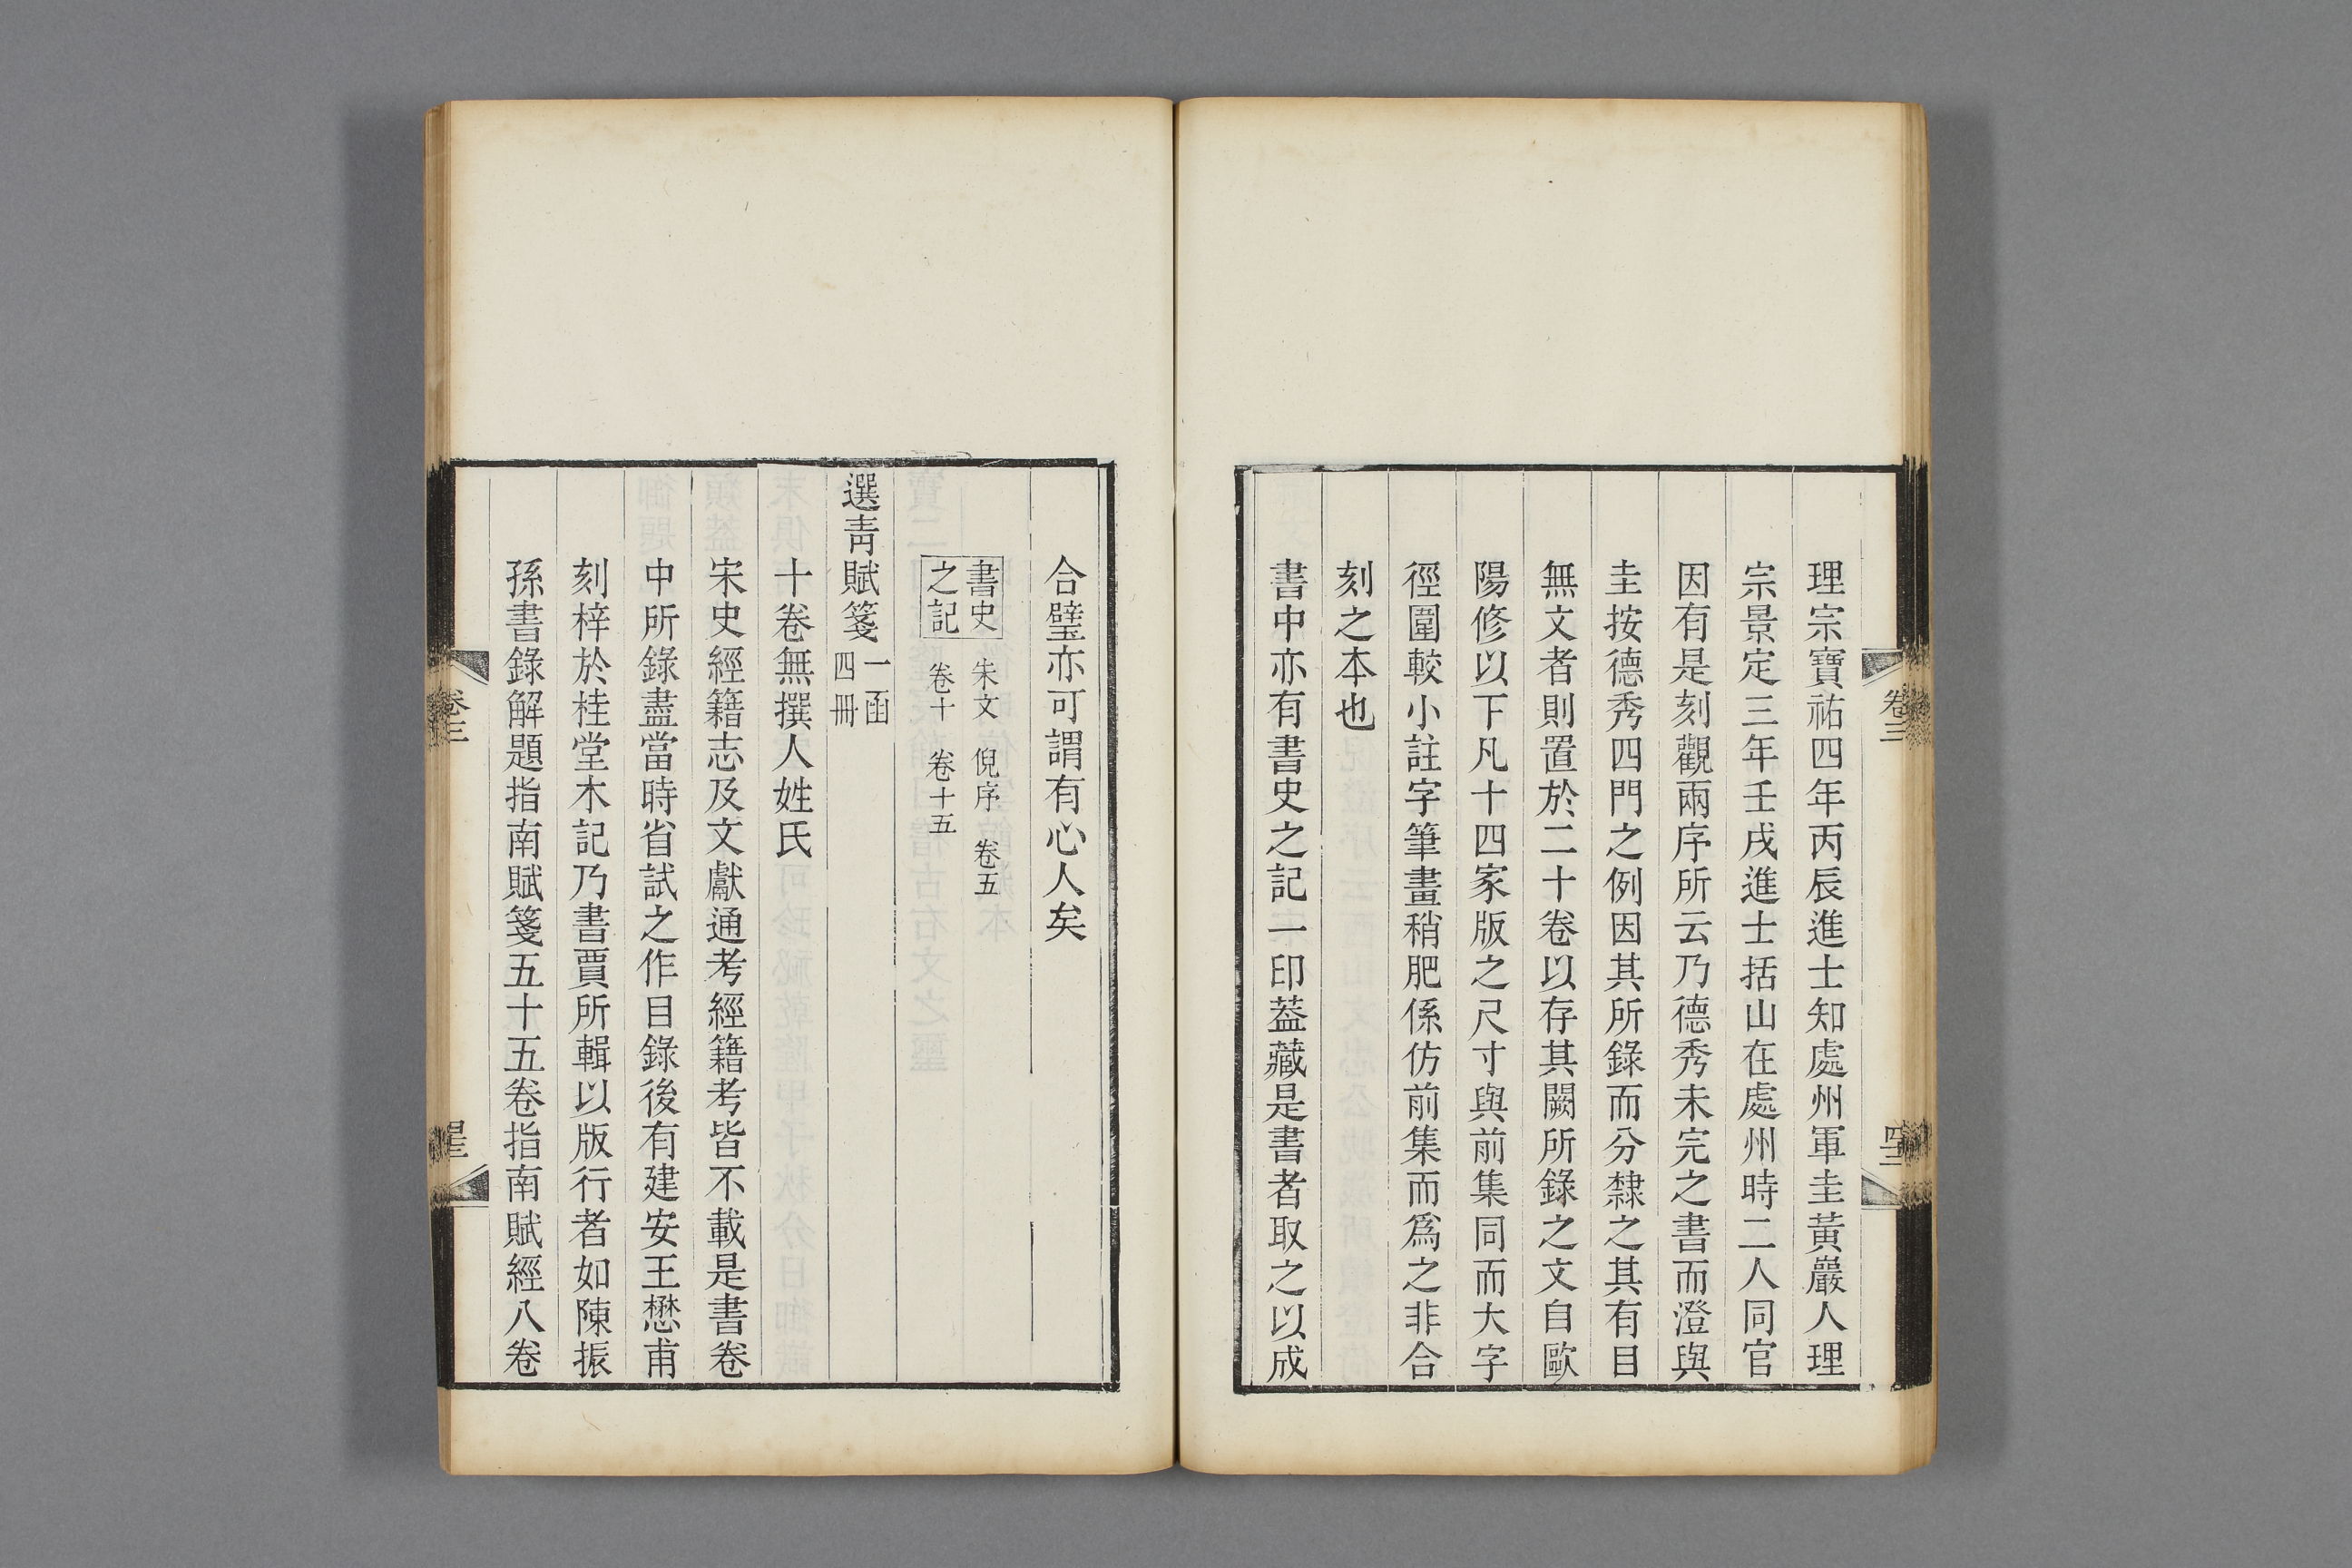 理宗寶祐四年丙辰進士知處州軍圭黃巖人理
宗景定三年壬戌進士括山在處州時二人同官
因有是刻觀兩序所云乃德秀未完之書而澄與
圭按德秀四門之例因其所錄而分隸之其有目
無文者則置於二十卷以存其闕所錄之文自歐
陽修以下凡十四家版之尺寸與前集同而大字
徑圍較小註字筆畫稍肥係仿前集而爲之非合
刻之本也
書中亦有書史之記一印葢藏是書者取之以成
合璧亦可謂有心人矣
書史
之記
朱文 倪序 卷五
卷十 卷十五
選青賦箋
一函
四冊
十卷無撰人姓氏
宋史經籍志及文獻通考經籍考皆不載是書卷
中所錄盡當時省試之作目錄後有建安王懋甫
刻梓於桂堂木記乃書賈所輯以版行者如陳振
孫書錄解題指南賦箋五十五卷指南賦經八卷
卷三
卷三